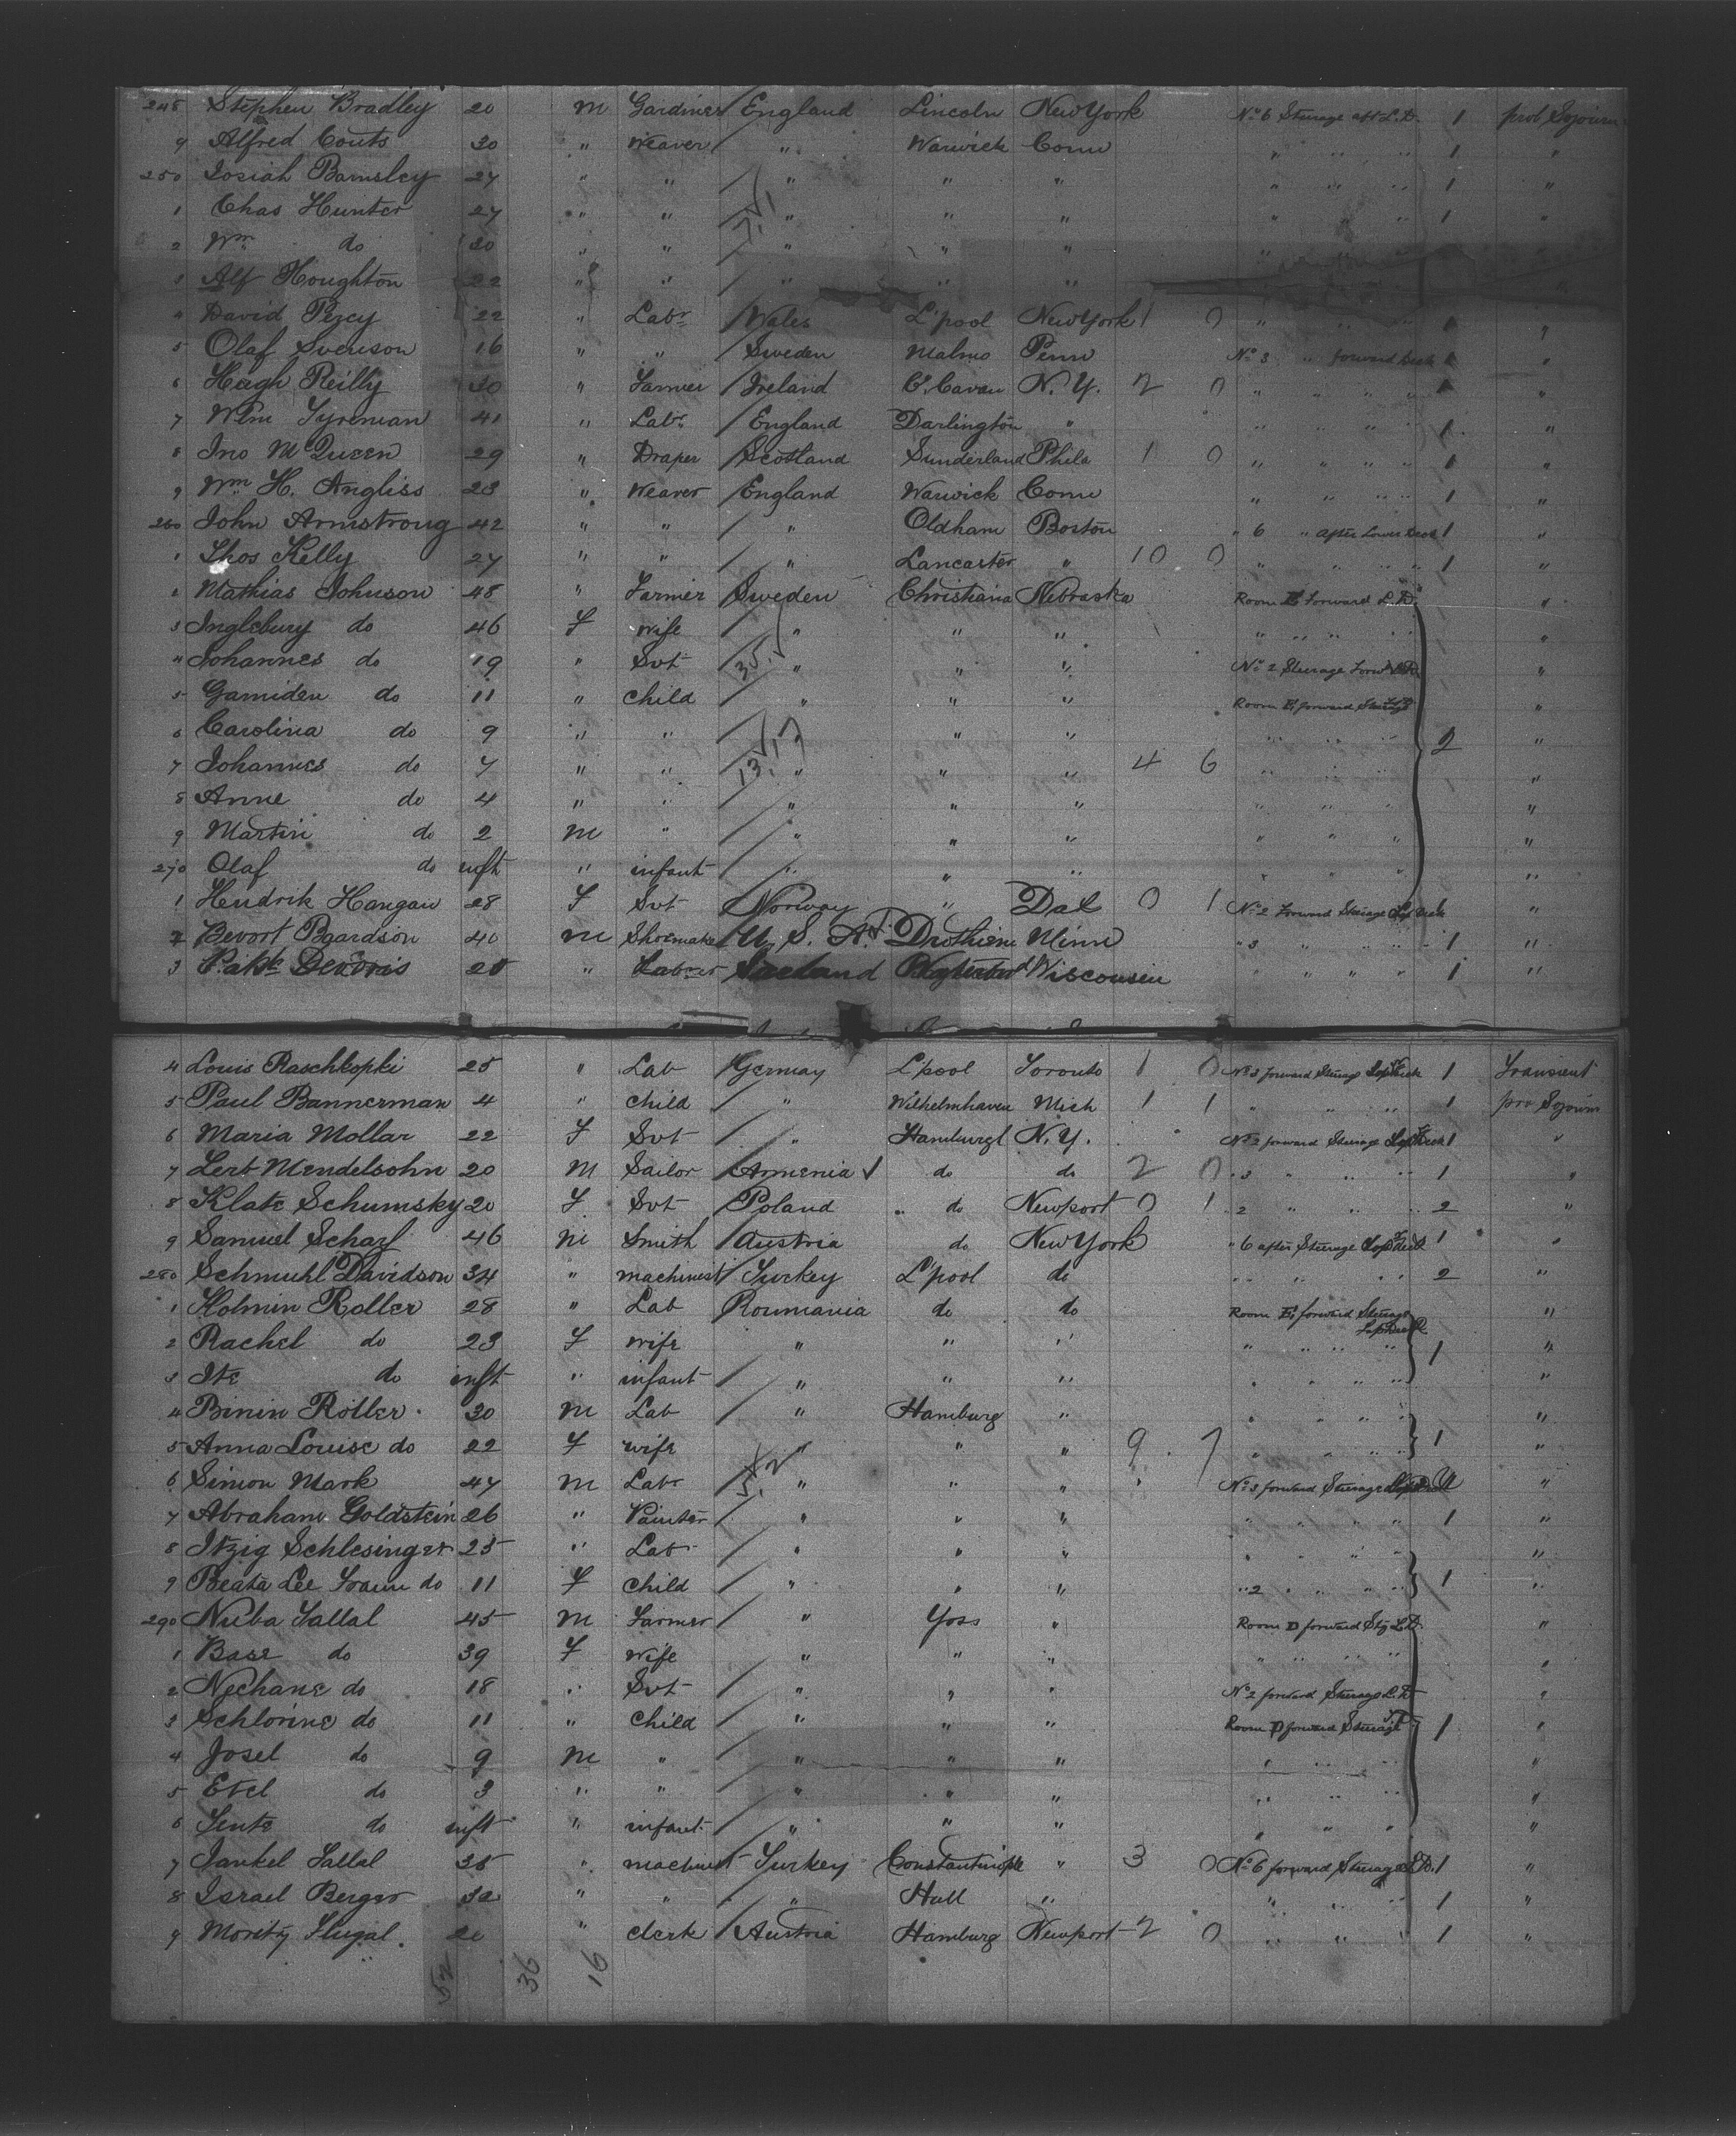 248 Stephen Bradley 20 m Gardiner England Lincoln New York No 6 Steerage aft L.D. 1 prob Sojourn
9 Alfred Couts 30 " Weaver " Warwick Conn " " " 1 "
250 Josiah Barnsley 27 " " " " " " " " 1 "
1 Chas Hunter 27 " " " " " " " " 1 "
2 Wm do 20 " " " " "
3 Alf Houghton 22 " " " " "
4 David Percy 22 " Labr Wales L'pool New York 1 0 " " " 1 "
5 Olaf Svenson 16 " " Sweden Malmo Penn No 3 " forward Deck 1 "
6 Hugh Reilly 30 " Farmer Ireland C. Cavan N.Y. 2 0 " " " " 1 "
7 Wm Tyreman 41 " Labr England Darlington " " " " " 1 "
8 Jno McQueen 29 " Draper Scotland Sunderland Phila 1 0 " " " " 1 "
9 Wm H. Angliss 23 " Weaver England Warwick Conn " " " " 1 "
260 John Armstrong 42 " " " Oldham Boston " 6 " After Lower Deck 1 "
1 Thos Kelly 27 " " " Lancaster " 10 0 " " " " 1 "
2 Mathias Johnson 48 " Farmer Sweden Christiana Nebraska Room E forward L.D. "
3 Inglebury do 46 F Wife " " " " " " " "
4 Johannes do 19 " Svt 35. " " " No 2 Steerage Forwd "
5 Gamiden do 11 " Child " " " Room E forward Steerage "
6 Carolina do 9 " " " " " " " 2 "
7 Johannes do 7 " " 13. " " " 4 6 " " " "
8 Anne do 4 " " " " " " " " "
9 Martin do 2 m " " " " " " " "
270 Olaf do inft " infant " " " " " " "
1 Hendrik Hangan 28 F Svt Norway " Dak 0 1 No 2 Forward Steerage Deck "
2 Bevort Baardson 40 m Shoemaker U.S.A. Drothiene Minn " 3 " " " 1 "
3 28 " Wisconsin " " " " 1 "
4 Louis Raschkopki 25 " Lab Germay L'pool Toronto 1 0 No 3 forward Steerage 1 Transient
5 Paul Bannerman 4 " Child " Wilhelmhaven Mich 1 1 " " " 1 pro Sojourn
6 Maria Mollar 22 F Svt " Hamburg N.Y. No 2 forward Steerage 1 "
7 Lert Mendelsohn 20 M Sailor Armenia do do 2 0 " 3 " " " 1 "
8 Klate Schumsky 20 F Svt Poland " do Newport 0 1 " 2 " " " 2 "
9 Samuel Scharf 46 m Smith Austria do New York " 6 after Steerage 1 "
280 Schmuhl Davidson 34 " machinest Turkey L'pool do " " " 2 "
1 Kolmin Roller 28 " Lab Roumania do do Room E forward Steerage "
2 Rachel do 23 F wife " " " " " " 1 "
3 Ite do inft " infant " " " " " " "
4 Binin Rotler 30 m Lab " Hamburg " " " " "
5 Anna Louise do 22 F wife " " " 9 7 " " " 1 "
6 Simon Mark 47 m Labr 5. " " " No 3 forward Steerage "
7 Abraham Goldstein 26 " Painter " " " " " " 1 "
8 Itzig Schlesinger 25 " Lab " " " " " " "
9 Beata Lee do 11 F Child " " " " 2 " " " 1 "
290 Nuba Sallal 45 m Farmer " Yoss " Room D forward Stg L.D. "
1 Base do 39 F wife " " " " " " "
2 Nechane do 18 " Svt " " " No 2 forward Steerage L.D. "
3 Schlorme do 11 " Child " " " Room D forward Steerage 1 "
4 Josel do 9 m " " " " " " " "
5 Etel do 3 " " " " " " " " "
6 do inft " infant " " " " " " "
7 Jankel Sallal 35 " machinist Turkey Constantinople " 3 0 No 6 forward Steerage L.D. 1 "
8 Israel Berger 32 " " " Hull " " " " 1 "
9 Moritz 20 " Clerk Austria Hamburg Newport 2 0 " " " 1 "
52 36 16